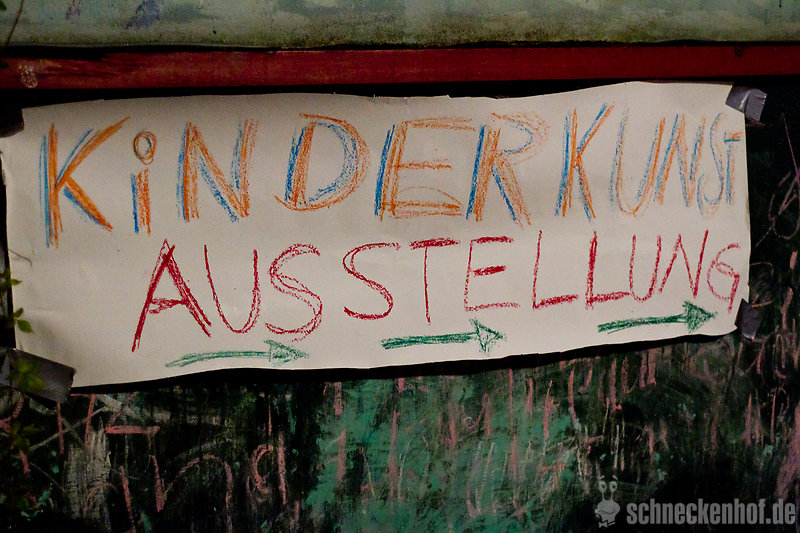 KiNDERKUNST
AUSSTELLUNG
schneckenhof.de